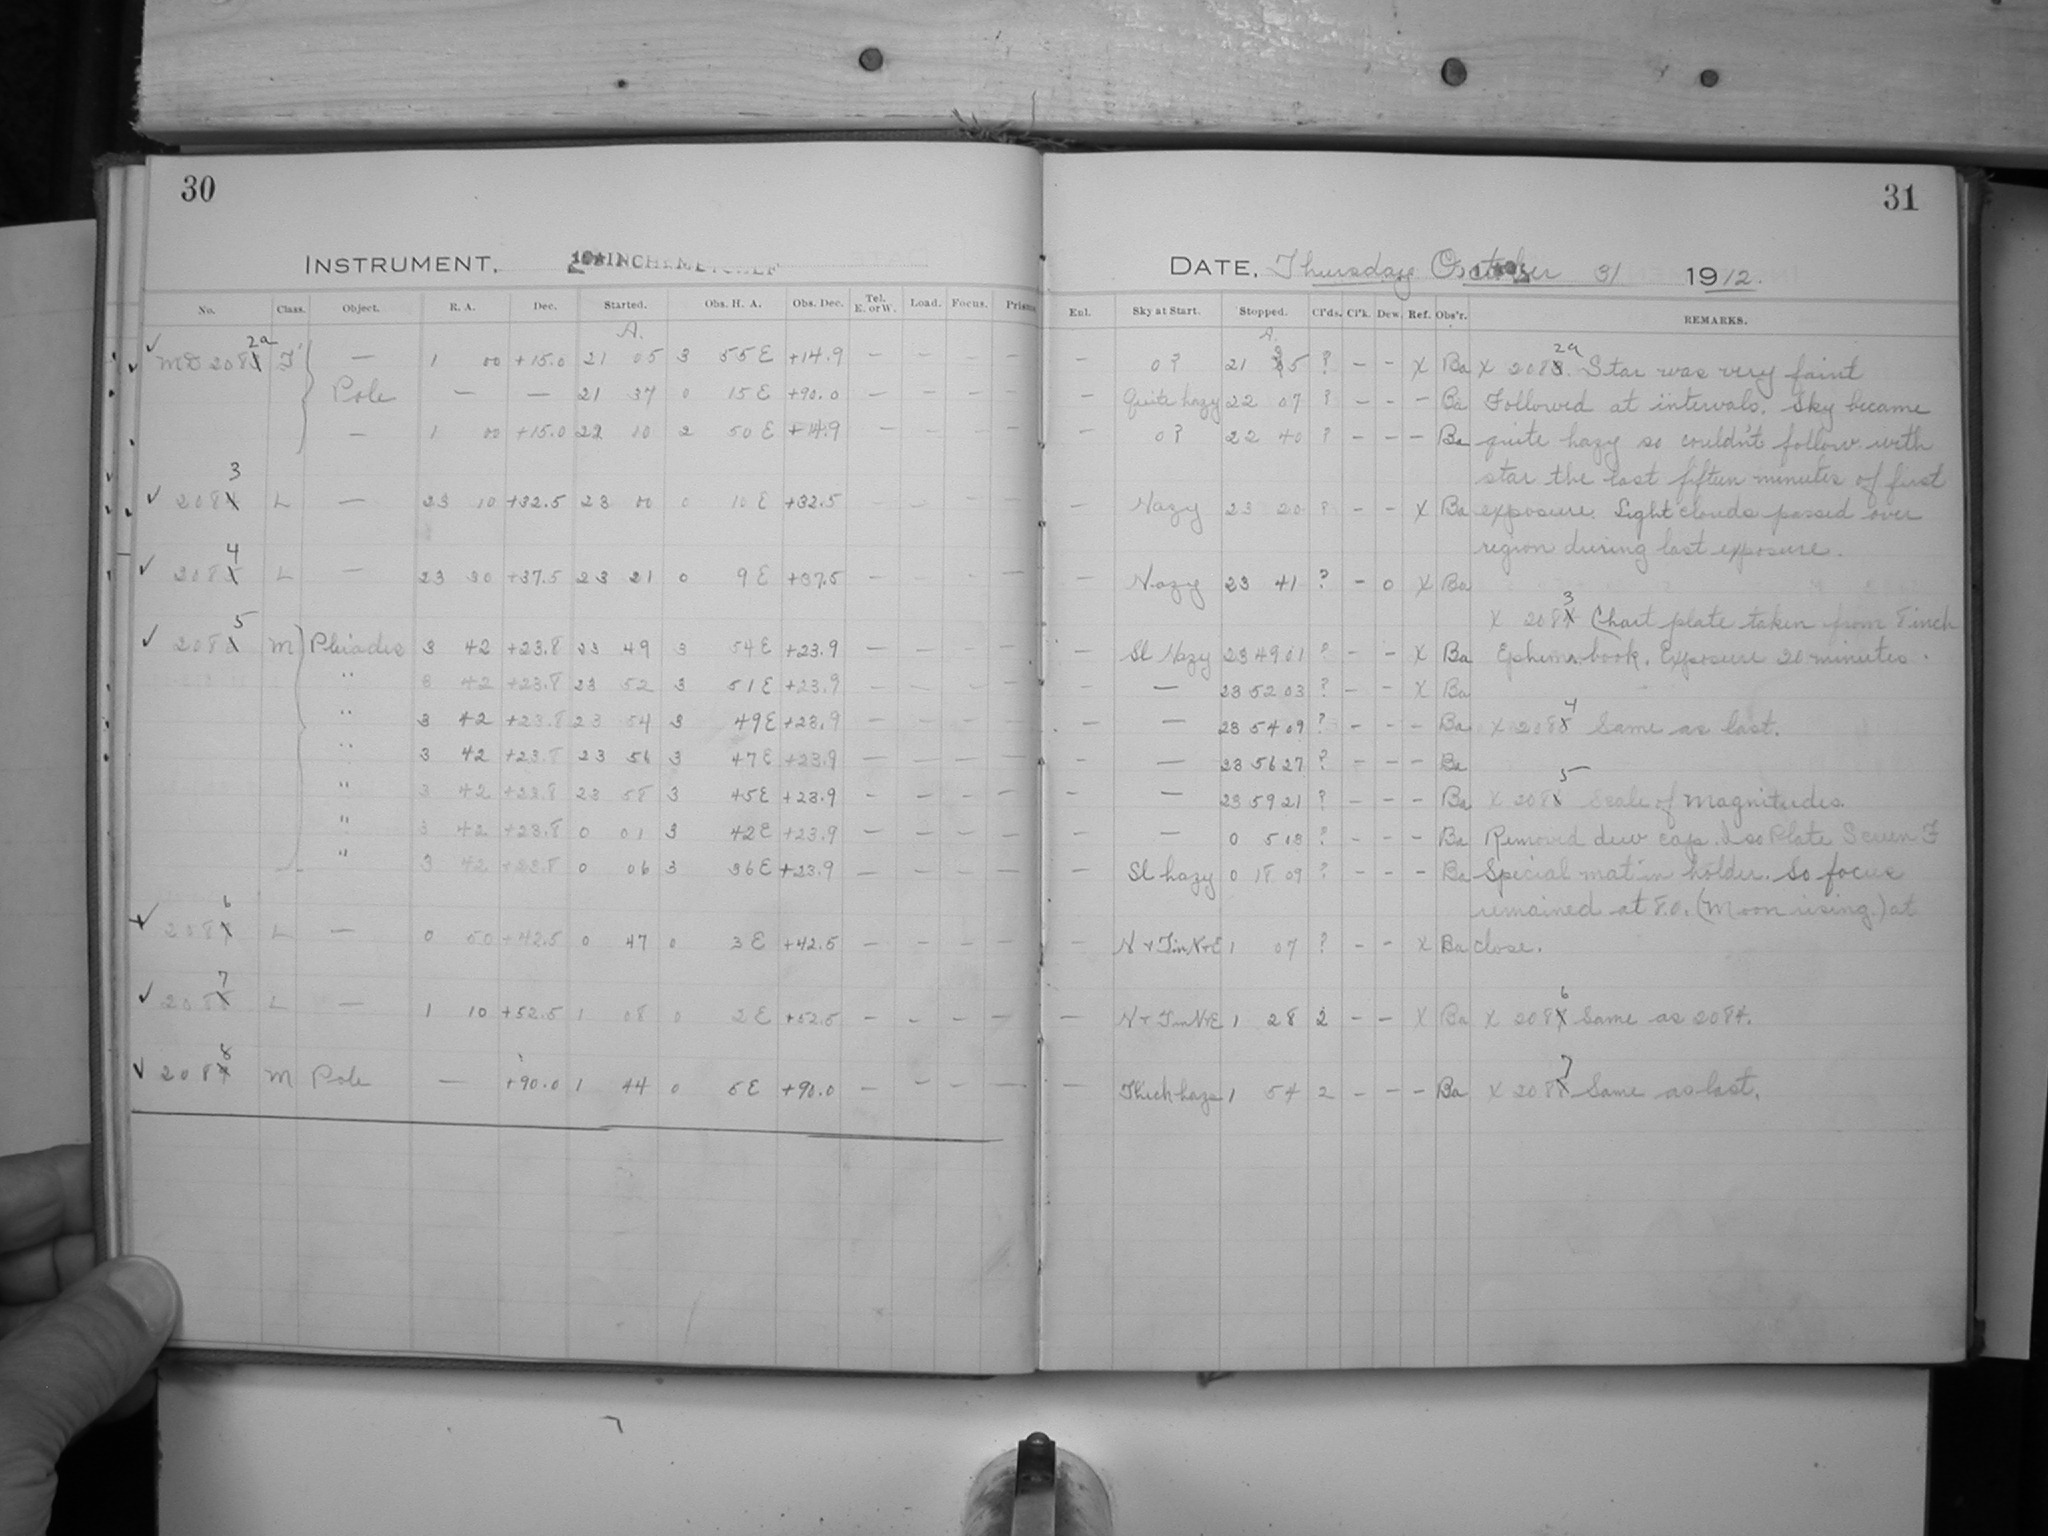 30
INSTRUMENT,
No. Class. Object. R. A. Dec. Started. Obs. H. A. Obs. Dec. Tel. E. or W. Load. Focus. Prism
A.
2a
MD 208 I — 1 00 +15.0 21 05 3 55 E +14.9 — — — —
Pole — — 21 37 0 15 E +90.0 — — — —
— 1 00 +15.0 22 10 2 50 E +14.9 — — — —
3
208 L — 23 10 +32.5 23 00 0 10 E +32.5 — — — —
4
208 L — 23 30 +37.5 23 21 0 9 E +37.5 — — — —
5
208 M Pleiades 3 42 +23.8 23 49 3 54 E +23.9 — — — —
" 3 42 +23.8 23 52 3 51 E +23.9 — — — —
" 3 42 +23.8 23 54 3 49 E +23.9 — — — —
" 3 42 +23.8 23 56 3 47 E +23.9 — — — —
" 3 42 +23.8 23 58 3 45 E +23.9 — — — —
" 3 42 +23.8 0 01 3 42 E +23.9 — — — —
" 3 42 +23.8 0 06 3 36 E +23.9 — — — —
6
208 L — 0 50 +42.5 0 47 0 3 E +42.5 — — — —
7
208 L — 1 10 +52.5 1 08 0 2 E +52.5 — — — —
8
208 M Pole — +90.0 1 44 0 5 E +90.0 — — — —
31
DATE, Thursday October 31 1912.
Enl. Sky at Start. Stopped. Cl'ds. Cl'k. Dew. Ref. Obs'r. REMARKS.
A.
2a
— 0? 21 35 ? — — X Ba X 208 . Star was very faint
— Quite hazy 22 07 ? — — — Ba Followed at intervals. Sky became
— 0? 22 40 ? — — — Ba quite hazy so couldn't follow with
star the last fifteen minutes of first
— Hazy 23 20 ? — — X Ba exposure. Light clouds passed over
region during last exposure.
— Hazy 23 41 ? — 0 X Ba
3
X 208 Chart plate taken from 8 inch
— Sl Hazy 23 49 01 ? — — X Ba Ephem. book. Exposure 20 minutes.
— — 23 52 03 ? — — X Ba
4
— — 23 54 09 ? — — — Ba X 208 Same as last.
— — 23 56 27 ? — — — Ba
5
— — 23 59 21 ? — — — Ba X 208 Scale of Magnitudes.
— — 0 5 13 ? — — — Ba Removed dew cap. Iso Plate Screen F
— Sl hazy 0 18 09 ? — — — Ba Special mat in holder. So focus
remained at 8.0. (Moon rising.) at
— 1 07 ? — — X Ba close.
6
— 1 28 2 — — X Ba X 208 Same as 2084.
7
— Thick haze 1 54 2 — — — Ba X 208 Same as last.